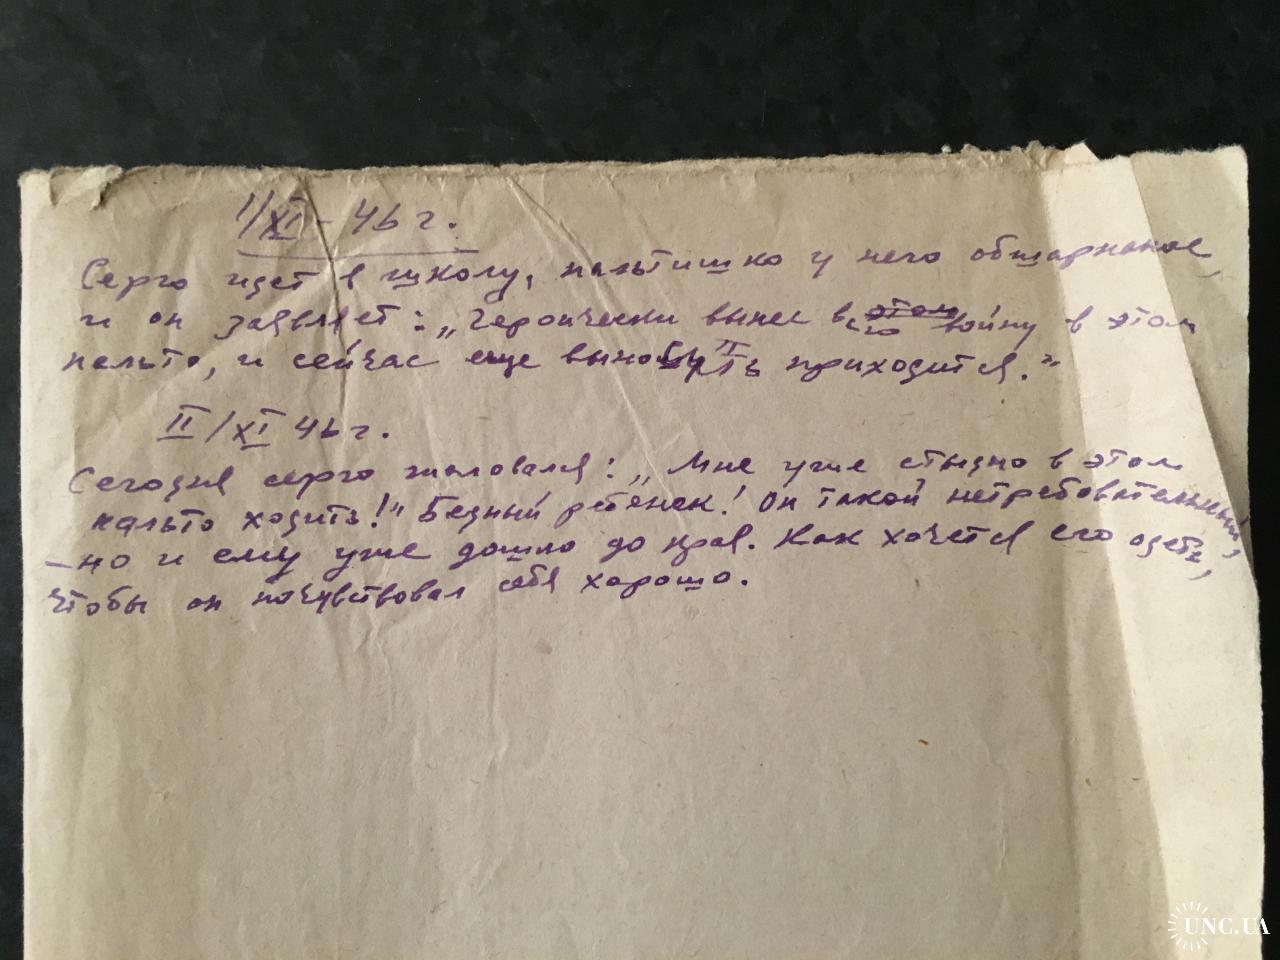 I/XI - 46 г.
Серго идет в школу, пальтишко у него обшарпаное,
и он заявляет: „Героически вынес всю войну в этом
пальто, и сейчас еще выносить приходится."
II/XI 46 г.
Сегодня серго жаловался: „Мне уже стыдно в этом
пальто ходить!" Бедный ребенок! Он такой нетребовательный,
– но и ему уже дошло до края. Как хочется его одеть,
чтобы он почувствовал себя хорошо.
UNC.UA